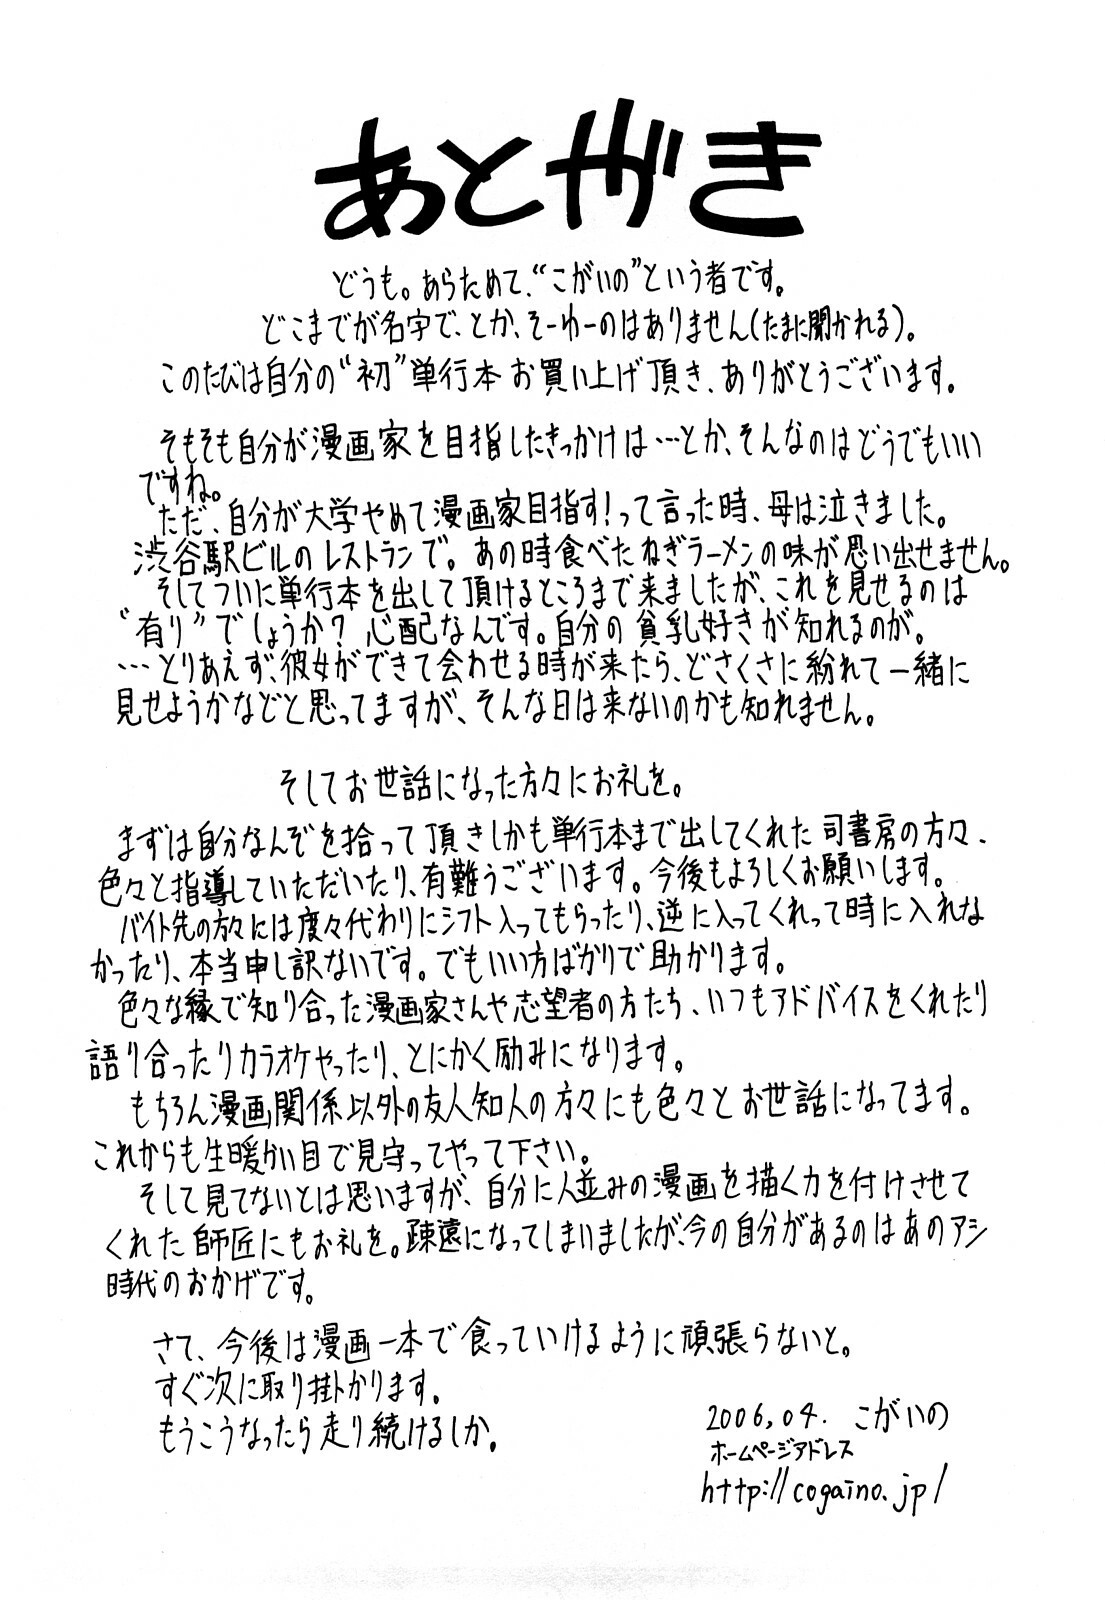 あとがき
どうも。あらためて、“こがいの”という者です。
どこまでが名字で、とか、そーゆーのはありません(たまに聞かれる)。
このたびは自分の“初”単行本お買い上げ頂き、ありがとうございます。
そもそも自分が漫画家を目指したきっかけは…とか、そんなのはどうでもいい
ですね。
ただ、自分が大学やめて漫画家目指す!って言った時、母は泣きました。
渋谷駅ビルのレストランで。あの時食べたねぎラーメンの味が思い出せません。
そしてついに単行本を出して頂けるところまで来ましたが、これを見せるのは
“有り”でしょうか?心配なんです。自分の貧乳好きが知れるのが。
…とりあえず、彼女ができて会わせる時が来たら、どさくさに紛れて一緒に
見せようかなどと思ってますが、そんな日は来ないのかも知れません。
そしてお世話になった方々にお礼を。
まずは自分なんぞを拾って頂きしかも単行本まで出してくれた司書房の方々、
色々と指導していただいたり、有難うございます。今後もよろしくお願いします。
バイト先の方々には度々代わりにシフト入ってもらったり、逆に入ってくれって時に入れな
かったり、本当申し訳ないです。でもいい方ばかりで助かります。
色々な縁で知り合った漫画家さんや志望者の方たち、いつもアドバイスをくれたり
語り合ったりカラオケやったり、とにかく励みになります。
もちろん漫画関係以外の友人知人の方々にも色々とお世話になってます。
これからも生暖かい目で見守ってやって下さい。
そして見てないとは思いますが、自分に人並みの漫画を描く力を付けさせて
くれた師匠にもお礼を。疎遠になってしまいましたが、今の自分があるのはあのアシ
時代のおかげです。
さて、今後は漫画一本で食っていけるように頑張らないと。
すぐ次に取り掛かります。
もうこうなったら走り続けるしか。
2006,04. こがいの
ホームページアドレス
http://cogaino.jp/